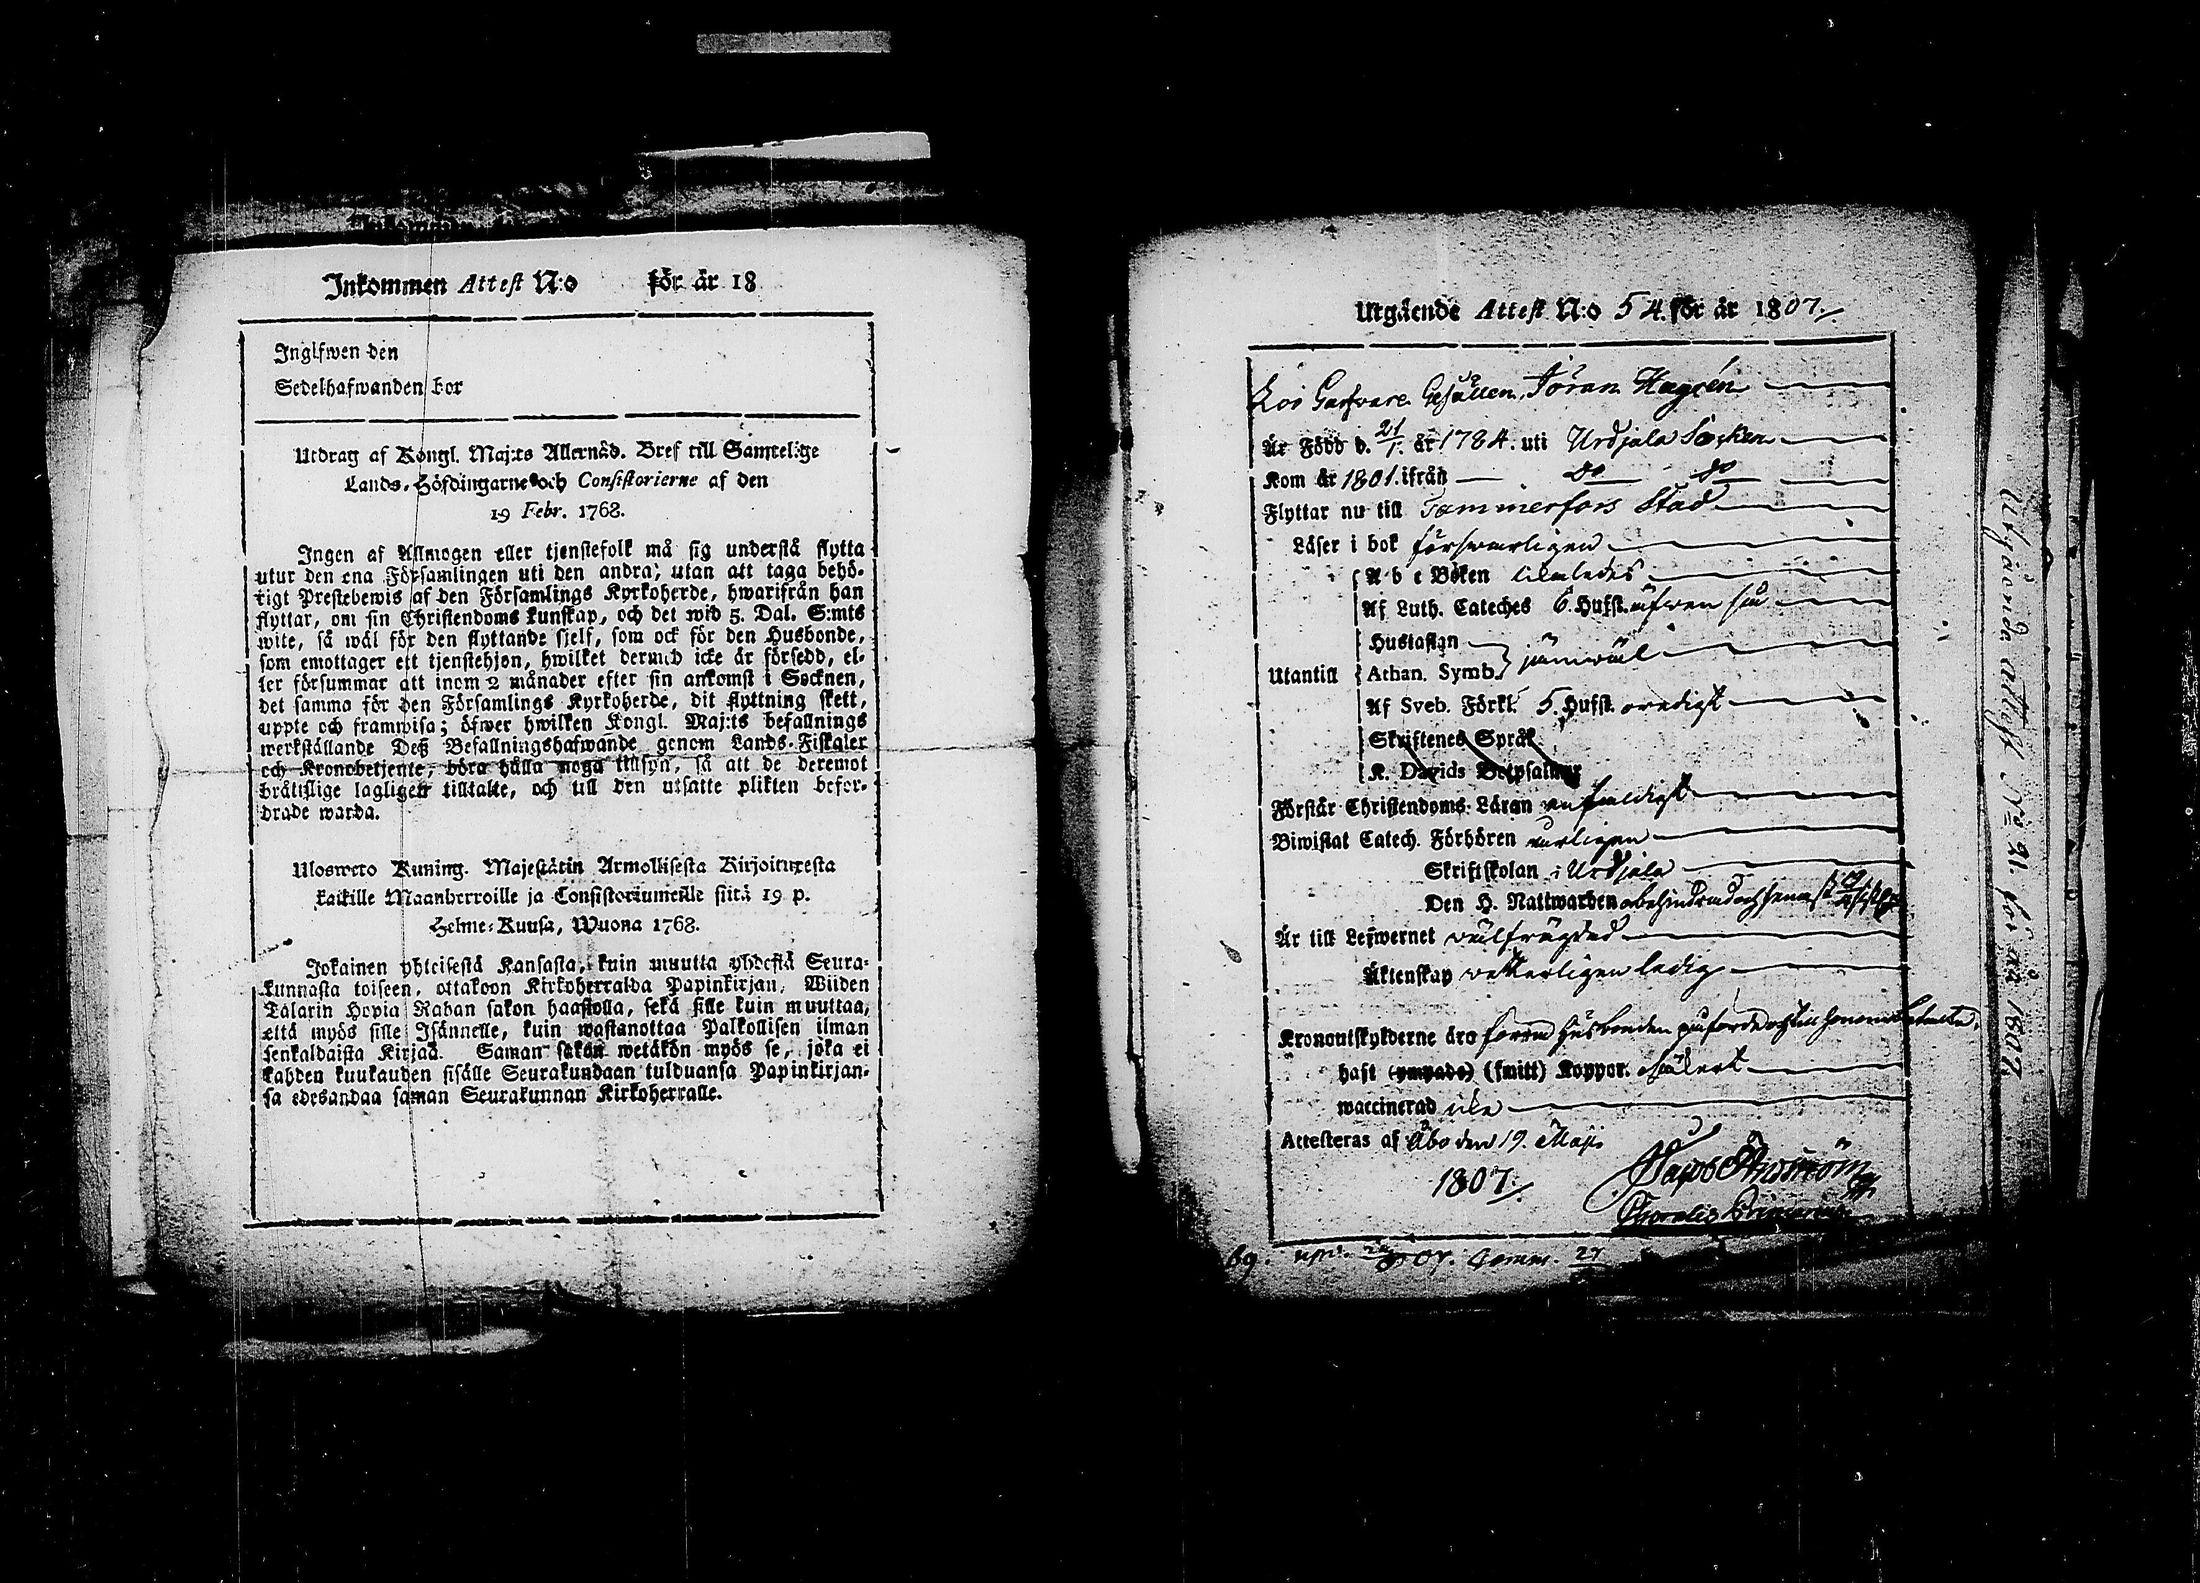 Inkommen Attest N:o för år 18
Ingifwen den
Sedelhafwanden bor
Utdrag af Kongl. Maj:ts Allernåd. Bref till Samtelige
Lands-Höfdingarne och Consistorierne af den
19 Febr. 1768.
Ingen af Allmogen eller tjenstefolk må sig understå flytta
utur den ena Församlingen uti den andra, utan att taga behö-
rigt Prestebewis af den Församlings Kyrkoherde, hwarifrån han
flyttar, om sin Christendoms kunskap, och det wid 5. Dal. S:mts
wite, så wäl för den flyttande sjelf, som ock för den Husbonde,
som emottager ett tjenstehjon, hwilket dermed icke är försedd, el-
ler försummar att inom 2 månader efter sin ankomst i Socknen,
det samma för den Församlings Kyrkoherde, dit flyttning skett,
uppte och framwisa; öfwer hwilken Kongl. Maj:ts befallnings
werkställande Deß Befallningshafwande genom Lands-Fiskaler
och Kronobetjente, böra hålla noga tillsyn, så att de deremot
brättslige lagligen tilltalte, och till den utsatte plikten befor-
drade warda.
Ulosweto Kuning. Majestätin Armollisesta Kirjoituxesta
kaikille Maanherroille ja Consistoriumeille siitä 19 p.
Helme-Kuusa, Wuona 1768.
Jokainen yhteisestä Kansasta, kuin muutta yhdestä Seura-
kunnasta toiseen, ottakoon Kirkoherralda Papinkirjan, Wiiden
Talarin Hopia Rahan sakon haastolla, sekä sille kuin muuttaa,
että myös sille Isännelle, kuin wastanottaa Palkollisen ilman
senkaldaista Kirjaa. Saman sakon wetäkön myös se, joka ei
kahden kuukauden sisälle Seurakundaan tulduansa Papinkirjan-
sa edesandaa saman Seurakunnan Kirkoherralle.
Utgående Attest N:o 54. för år 1807.
Garfvare Gesällen, Jöran Hagrén
Är Född d. 21/1. år 1784. uti Urdjala Socken
Kom år 1801. ifrån do do
Flyttar nu till Tammerfors Stad
Läser i bok försvarligen
A b c Boken likaledes
Af Luth. Cateches 6. Hufst. äfven så
Hustaflan
Utantill Athan. Symb. jämwäl
Af Sveb. Förkl. 5. Hufst. oredigt
Skriftenes Språk
K. Davids Botpsalmer
Förstår Christendoms Läran enfaldigt
Biwistat Catech. Förhören årligen
Skriftskolan i Urdjala
Den H. Nattwarden obehindrad och senast
Är till Lefwernet välfrägdad
Äktenskap vetterligen ledig
Kronoutskylderne äro förra husbonden påförde och till honom betalte.
haft (ympade) (smitt) Koppor. osäkert
waccinerad icke
Attesteras af Åbo den 19. Maji
1807.
69.
Utgående attest No 21. för år 1807.